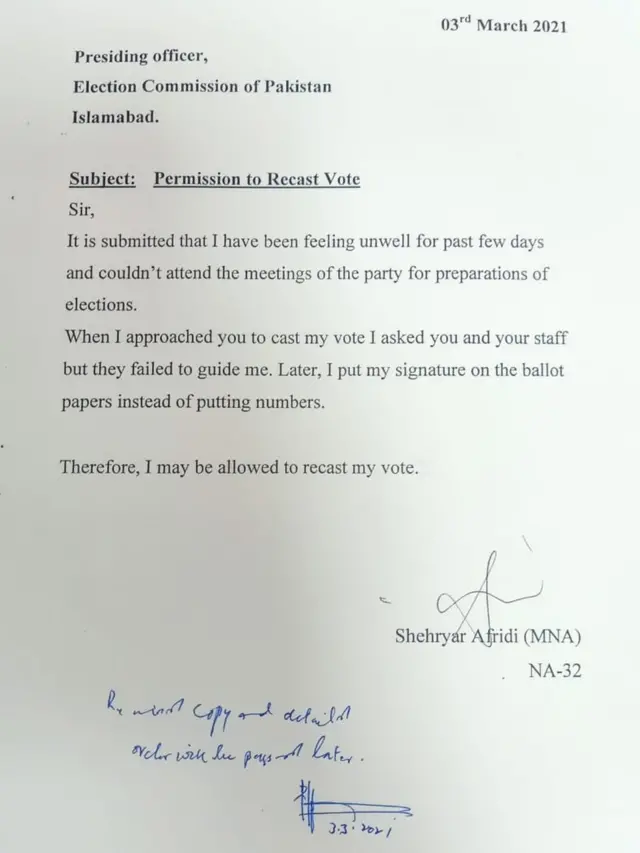 03rd March 2021
Presiding officer,
Election Commission of Pakistan
Islamabad.
Subject: Permission to Recast Vote
Sir,
It is submitted that I have been feeling unwell for past few days
and couldn't attend the meetings of the party for preparations of
elections.
When I approached you to cast my vote I asked you and your staff
but they failed to guide me. Later, I put my signature on the ballot
papers instead of putting numbers.
Therefore, I may be allowed to recast my vote.
Shehryar Afridi (MNA)
NA-32
copy and detailed
order will be later.
3.3.2021